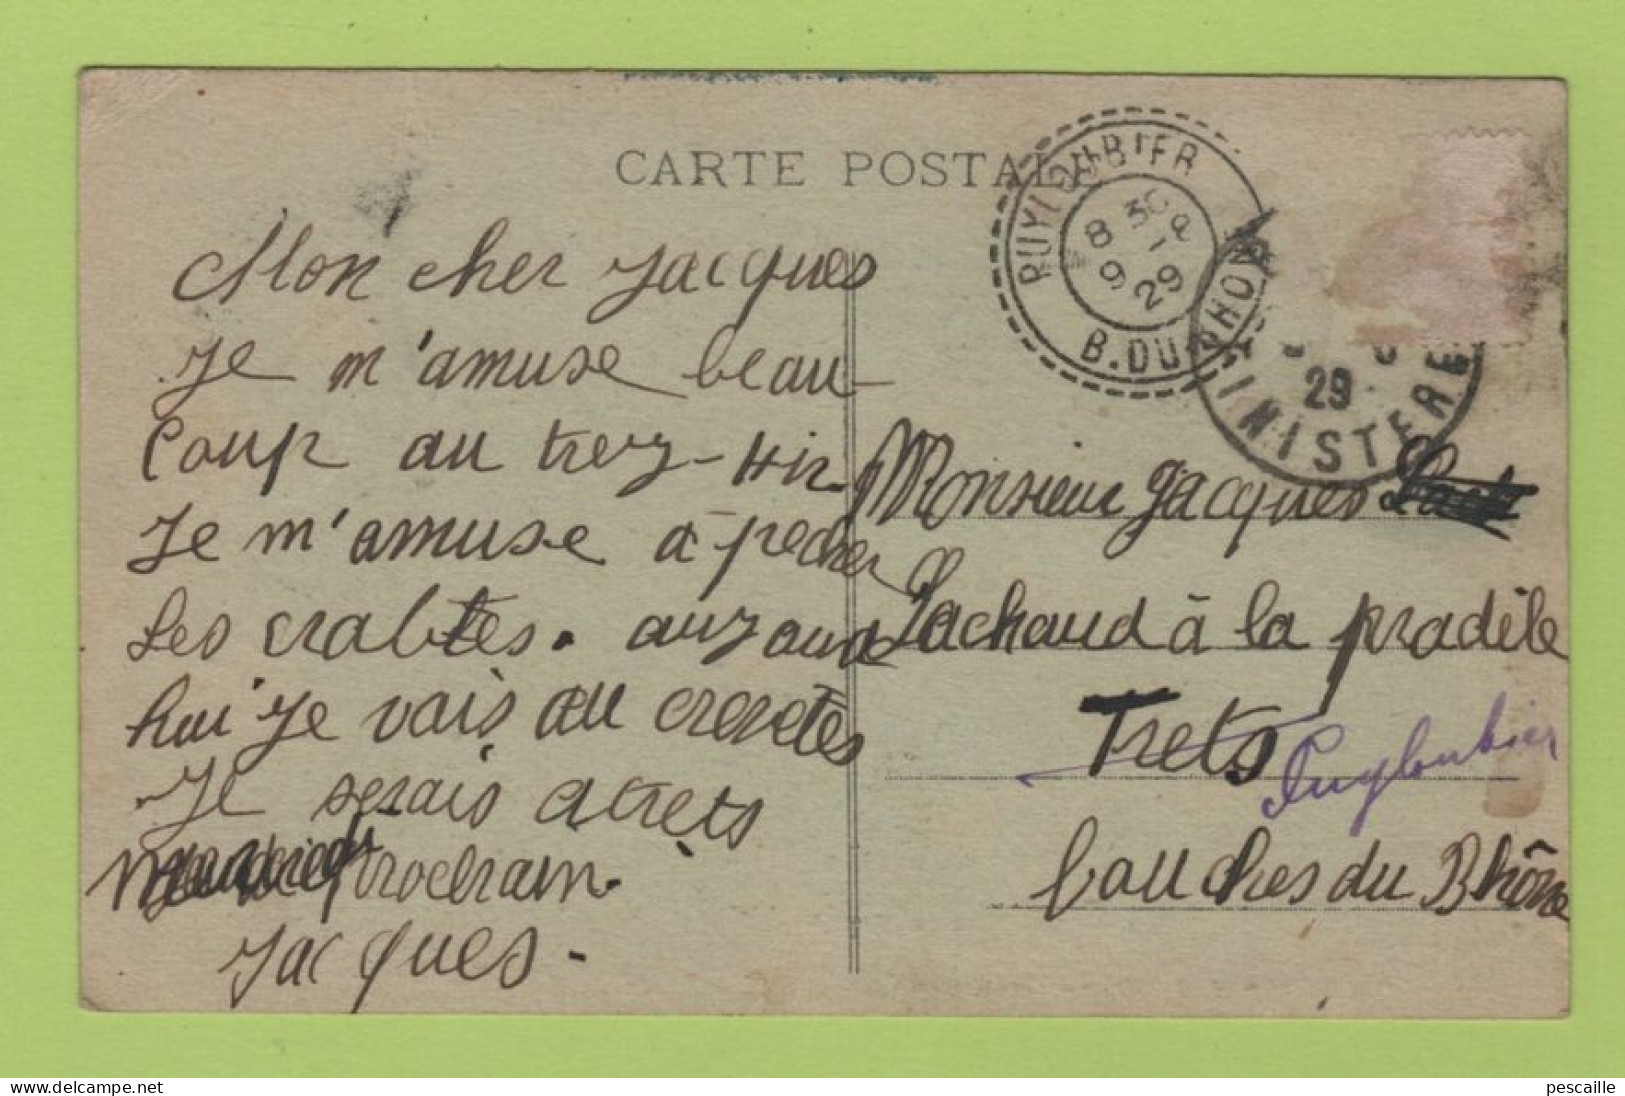 CARTE POSTALE
PUYLOUBIER
8 30
9 - 9
29
B. DU RHONE
29
FINISTERE
Mon cher Jacques
Je m'amuse beau-
coup au trez-Hir.
Je m'amuse à pecher
Les crabtes. auyourd
hui Je vais au crevetes
Je serais a trets
prochain.
Jacques.
Monsieur Jacques
Lachaud à la pradèle
Trets
Puyloubier
bouches du Rhône
delcampe.net
pescaille